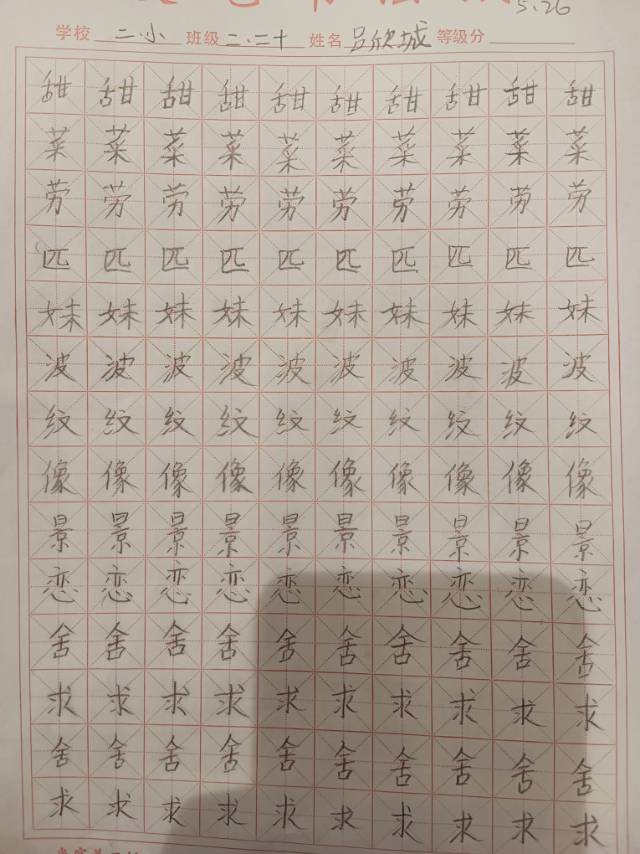 5.26
学校 二.小 班级 二.二十 姓名 吕欣城 等级分
甜 甜 甜 甜 甜 甜 甜 甜 甜 甜
菜 菜 菜 菜 菜 菜 菜 菜 菜 菜
劳 劳 劳 劳 劳 劳 劳 劳 劳 劳
匹 匹 匹 匹 匹 匹 匹 匹 匹 匹
妹 妹 妹 妹 妹 妹 妹 妹 妹 妹
波 波 波 波 波 波 波 波 波 波
纹 纹 纹 纹 纹 纹 纹 纹 纹 纹
像 像 像 像 像 像 像 像 像 像
景 景 景 景 景 景 景 景 景 景
恋 恋 恋 恋 恋 恋 恋 恋 恋 恋
舍 舍 舍 舍 舍 舍 舍 舍 舍 舍
求 求 求 求 求 求 求 求 求 求
舍 舍 舍 舍 舍 舍 舍 舍 舍 舍
求 求 求 求 求 求 求 求 求 求